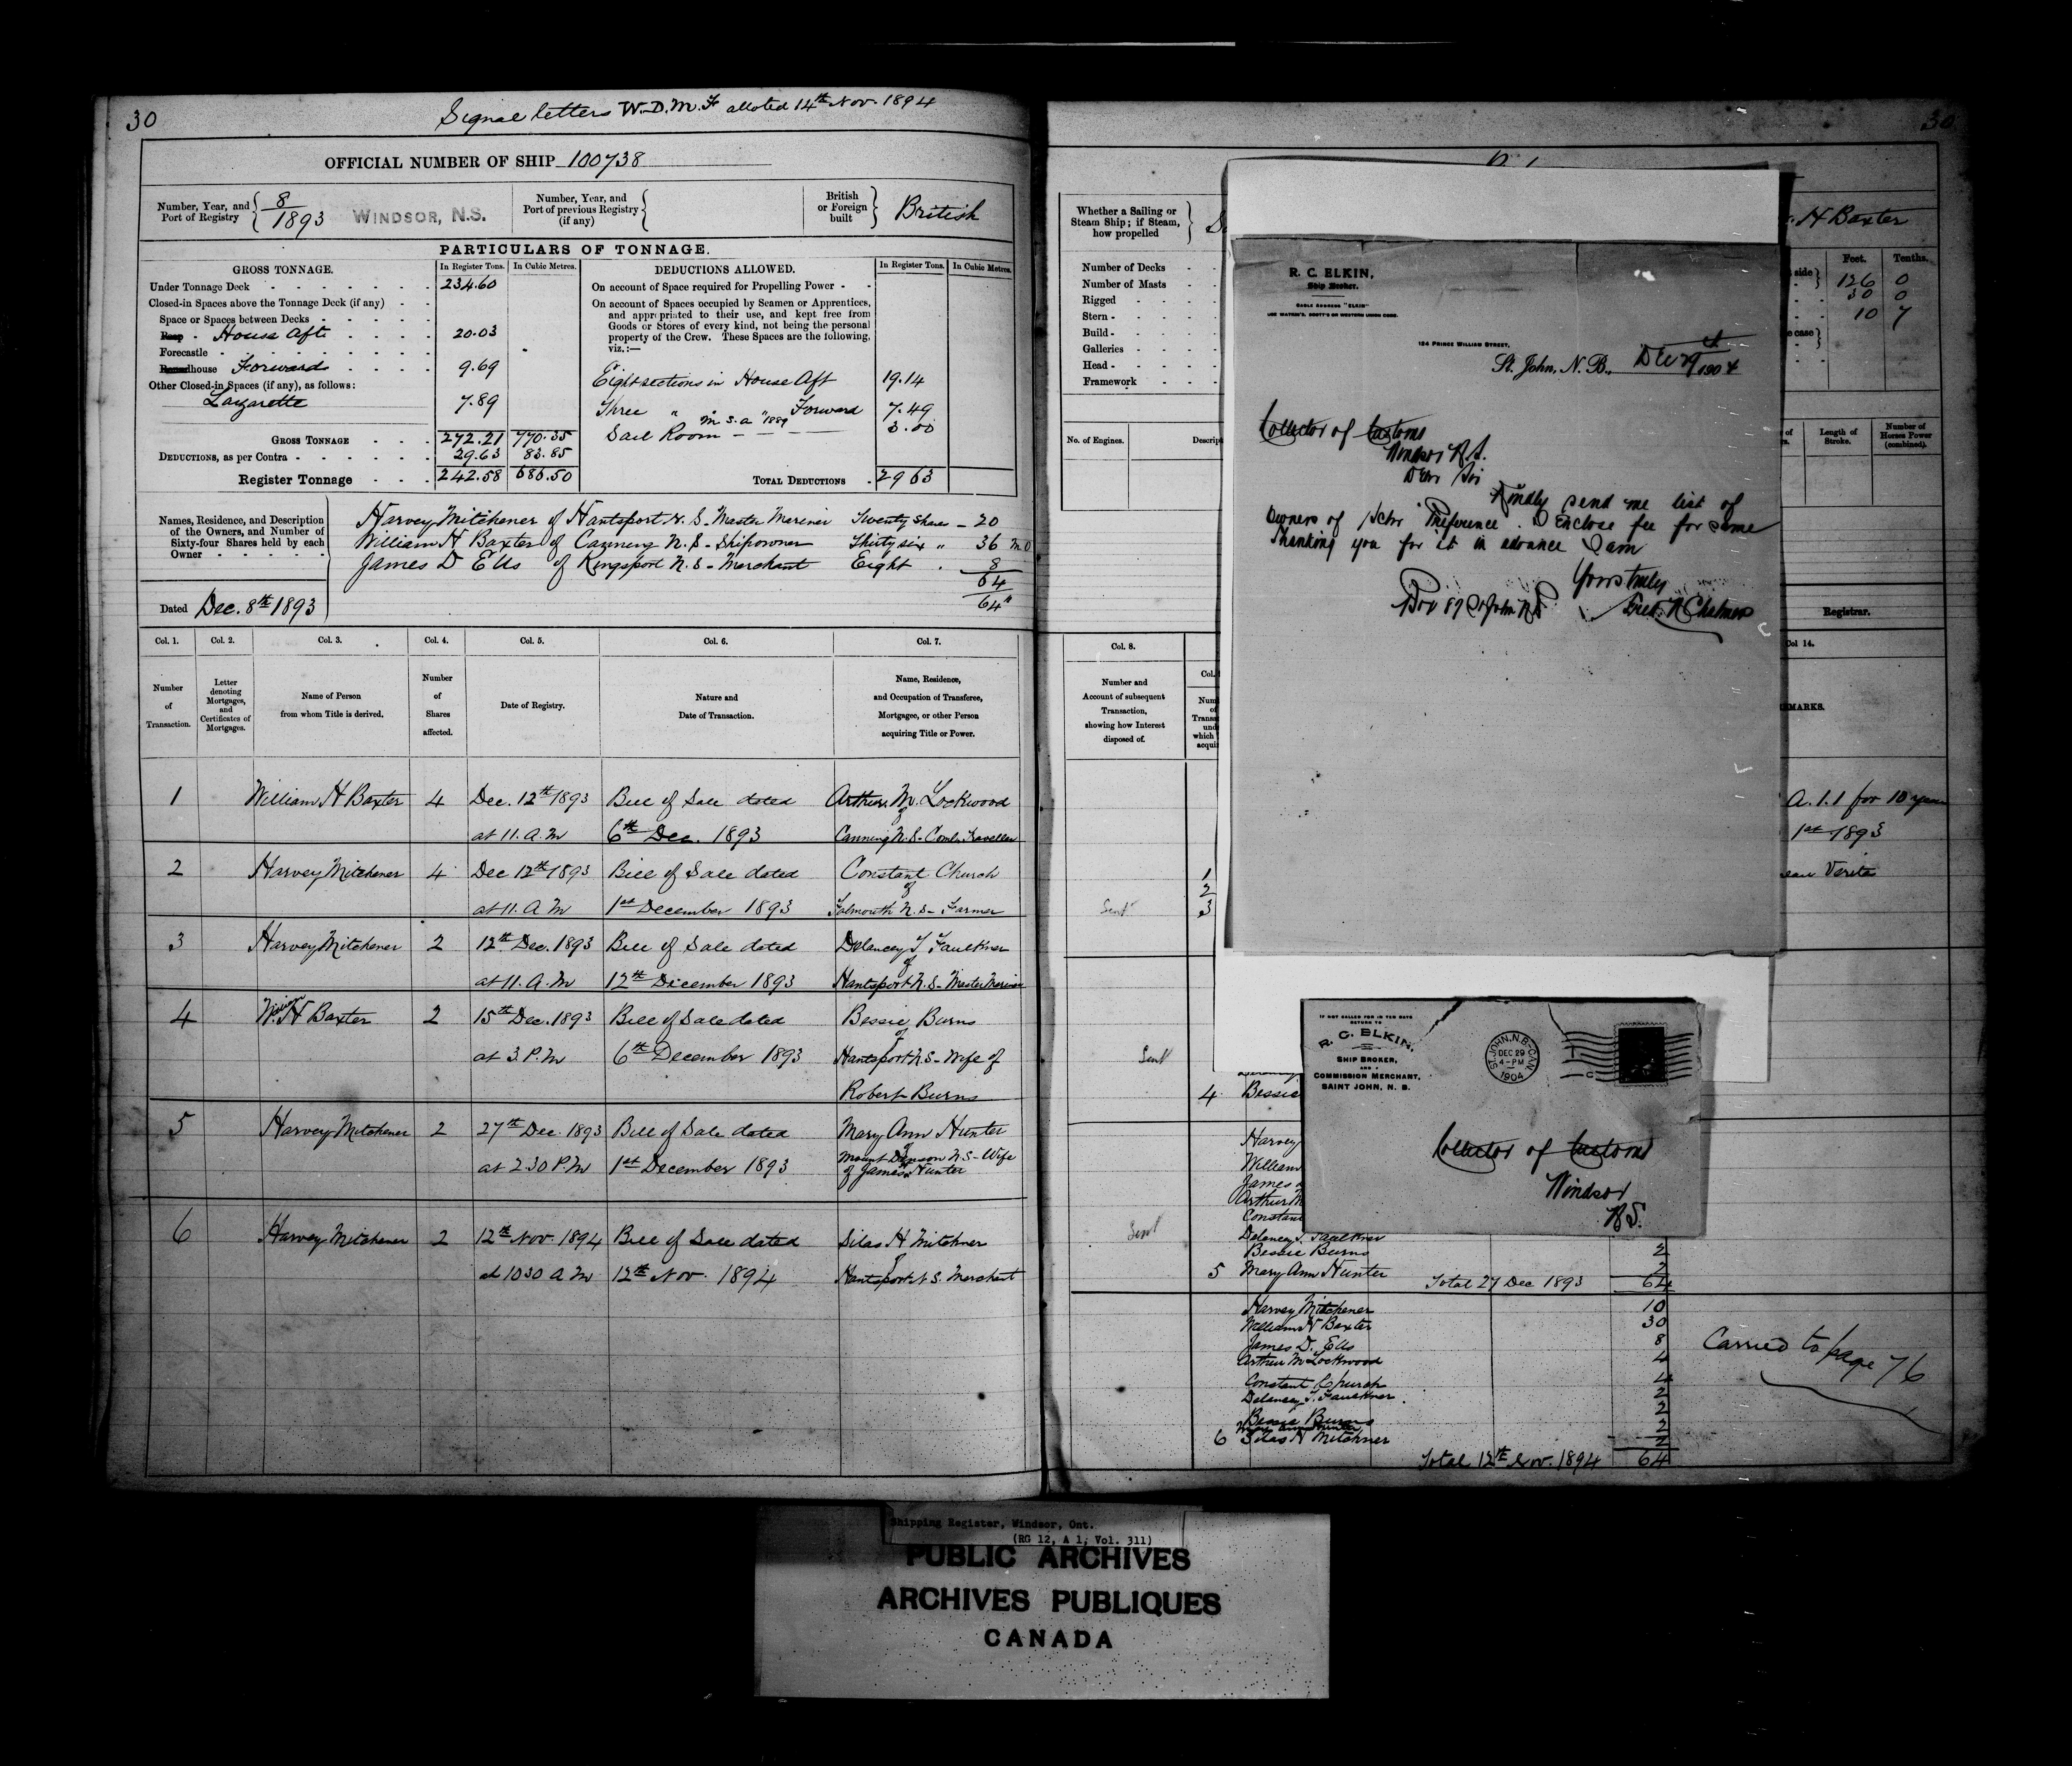 30
Signal letters W.D.M.F alloted 14th Nov. 1894
OFFICIAL NUMBER OF SHIP 100738
Number, Year, and Port of Registry { 8/1893 WINDSOR, N.S.
Number, Year, and Port of previous Registry (if any) {
British or Foreign built } British
PARTICULARS OF TONNAGE.
GROSS TONNAGE. In Register Tons. In Cubic Metres.
Under Tonnage Deck 234.60
Closed-in Spaces above the Tonnage Deck (if any)
Space or Spaces between Decks
House Aft 20.03
Forecastle
house Forward 9.69
Other Closed-in Spaces (if any), as follows:
Lazarette 7.89
GROSS TONNAGE 272.21 770.35
DEDUCTIONS, as per Contra 29.63 83.85
Register Tonnage 242.58 686.50
DEDUCTIONS ALLOWED. In Register Tons. In Cubic Metres.
On account of Space required for Propelling Power
On account of Spaces occupied by Seamen or Apprentices,
and appropriated to their use, and kept free from
Goods or Stores of every kind, not being the personal
property of the Crew. These Spaces are the following,
viz.:—
Eight sections in House Aft 19.14
Three " " Forward 7.49
M.S.A. 1889
Sail Room 3.00
TOTAL DEDUCTIONS 29 63
Names, Residence, and Description
of the Owners, and Number of
Sixty-four Shares held by each
Owner
Harvey Mitchener of Hantsport N.S - Master Mariner Twenty Shares - 20
William H Baxter of Canning N.S - Shipowner Thirty six " 36 M.O
James D Ells of Kingsport N.S - Merchant Eight 8
64
64"
Dated Dec. 8th 1893
Col. 1. Col. 2. Col. 3. Col. 4. Col. 5. Col. 6. Col. 7.
Number of Transaction.
Letter denoting Mortgages, and Certificates of Mortgages.
Name of Person from whom Title is derived.
Number of Shares affected.
Date of Registry.
Nature and Date of Transaction.
Name, Residence, and Occupation of Transferee, Mortgagee, or other Person acquiring Title or Power.
1 William H Baxter 4 Dec. 12th 1893 Bill of Sale dated Arthur M. Lockwood
of
at 11. A.M 6th Dec. 1893 Canning N.S - Coml. Traveller
2 Harvey Mitchener 4 Dec 12th 1893 Bill of Sale dated Constant Church
of
at 11. A M 1st December 1893 Falmouth N.S - Farmer
3 Harvey Mitchener 2 12th Dec. 1893 Bill of Sale dated Delancey T Faulkner
of
at 11. A.M 12th December 1893 Hantsport N.S - Master Mariner
4 Willm H Baxter 2 15th Dec. 1893 Bill of Sale dated Bessie Burns
of
at 3 P.M 6th December 1893 Hantsport N.S - Wife of
Robert Burns
5 Harvey Mitchener 2 27th Dec. 1893 Bill of Sale dated Mary Ann Hunter
of
at 2.30 P.M 1st December 1893 Mount Denson N.S - Wife
of James Hunter
6 Harvey Mitchener 2 12th Nov. 1894 Bill of Sale dated Silas H Mitchner
of
at 1030 A M 12th Nov. 1894 Hantsport N S. Merchant
30
Whether a Sailing or
Steam Ship; if Steam,
how propelled
H Baxter
Number of Decks
Number of Masts
Rigged
Stern
Build
Galleries
Head
Framework
Feet. Tenths.
side 126 0
30 0
10 7
e case
No. of Engines.
Descript
Length of Stroke.
Number of Horses Power (combined).
Registrar.
Col. 8.
Number and
Account of subsequent
Transaction,
showing how Interest
disposed of.
Col 14.
MARKS.
A.1.1 for 10 years
1st 1893
eau Verita
1
2
Sent 3
Sent
4 Bessie
Harvey
William
James
Arthur M
Constant
Sent
Delancey T. Faulkner
Bessie Burns 2
5 Mary Ann Hunter 2
Total 27 Dec 1893 64
Harvey Mitchener 10
William H Baxter 30
James D. Ells 8
Arthur M Lockwood 4
Constant Church 4
Delancey T. Faulkner 2
Bessie Burns 2
Mary Ann Hunter 2
6 Silas H Mitchner 2
Total 12th Nov. 1894 64
Carried to page 76
R. C. ELKIN,
Ship Broker.
CABLE ADDRESS "ELKIN"
USE WATKIN'S, SCOTT'S OR WESTERN UNION CODE.
134 PRINCE WILLIAM STREET,
St. John, N. B., Dec 29 1904
Collector of Customs
Windsor N.S.
Dear Sir
Kindly send me list of
owners of Schr "Preference". I enclose fee for same
Thanking you for it in advance I am
Yours truly
Box 87 St John NB
IF NOT CALLED FOR IN TEN DAYS
RETURN TO
R. C. ELKIN,
SHIP BROKER,
AND
COMMISSION MERCHANT,
SAINT JOHN, N. B.
ST. JOHN, N.B. CAN.
DEC 29
4-PM
1904
Collector of Customs
Windsor
N.S.
Shipping Register, Windsor, Ont.
(RG 12, A 1, Vol. 311)
PUBLIC ARCHIVES
ARCHIVES PUBLIQUES
CANADA